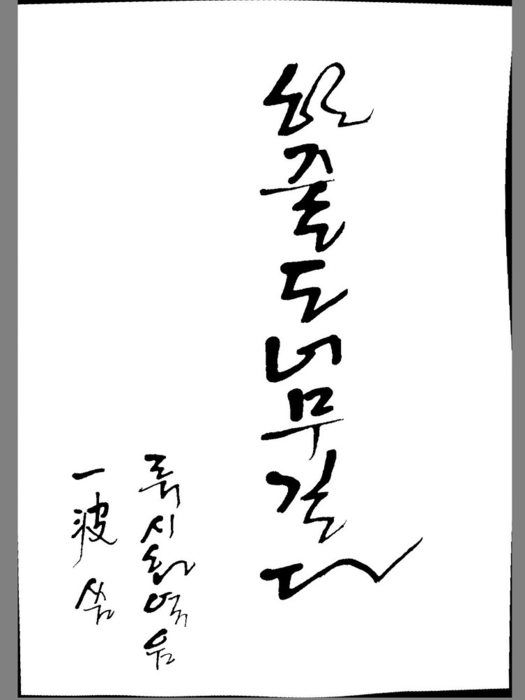 한줄도너무길다
류시화 엮음
一波 씀